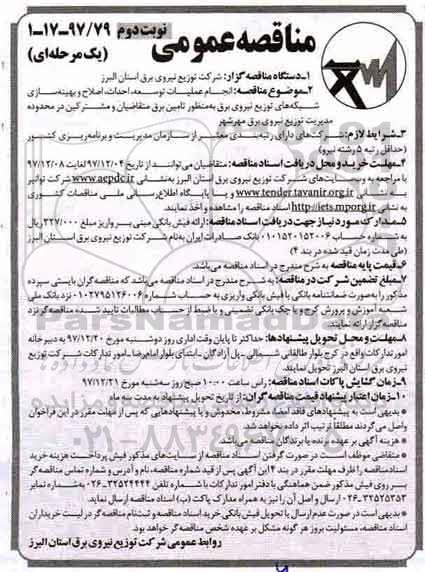 نوبت دوم ۱-۱۷-۹۷/۷۹
مناقصه عمومی (یک مرحله‌ای)
۱-دستگاه مناقصه گزار: شرکت توزیع نیروی برق استان البرز
۲-موضوع مناقصه: انجام عملیات توسعه، احداث، اصلاح و بهینه‌سازی
شبکه‌های توزیع نیروی برق به‌منظور تامین برق متقاضیان و مشترکین در محدوده
مدیریت توزیع نیروی برق مهرشهر
۳-شرایط لازم: شرکت‌های دارای رتبه‌بندی معتبر از سازمان مدیریت و برنامه‌ریزی کشور
(حداقل رتبه ۵ رشته نیرو)
۴-مهلت خرید و محل دریافت اسناد مناقصه: متقاضیان می‌توانند از تاریخ ۹۷/۱۲/۰۴ لغایت ۹۷/۱۲/۰۸
با مراجعه به وب سایت‌های شرکت توزیع نیروی برق استان البرز به‌نشانی www.aepdc.ir شرکت توانیر
به نشانی www.tender.tavanir.org.ir و یا پایگاه اطلاع‌رسانی ملی مناقصات کشوری
http://iets.mporg.ir اسناد مناقصه را مشاهده و اخذ نمایند.
۵-مدارک مورد نیاز جهت دریافت اسناد مناقصه: ارائه فیش بانکی مبنی بر واریز مبلغ ۳۲۷/۰۰۰ ریال
به شماره حساب ۰۱۰۱۵۲۰۱۵۲۰۰۶ بانک صادرات ایران به‌نام شرکت توزیع نیروی برق استان البرز
(طی مدت زمان قید شده در بند ۴)
۶-قیمت پایه مناقصه به شرح مندرج در اسناد مناقصه می‌باشد.
۷-مبلغ تضمین شرکت در مناقصه: به شرح مندرج در اسناد مناقصه می‌باشد که مناقصه گران بایستی سپرده
مذکور را به‌صورت ضمانتنامه بانکی یا فیش بانکی واریزی به حساب شماره ۰۱۰۲۷۹۵۱۲۶۰۰۶ نزد بانک ملی
شعبه آموزش و پرورش کرج و یا چک بانکی تضمینی و یا ضبط از حساب مطالبات تایید شده مناقصه‌گر نزد
مناقصه گزار ارائه نمایند.
۸-مهلت و محل تحویل پیشنهادها: حداکثر تا پایان وقت اداری روز دوشنبه مورخ ۹۷/۱۲/۲۰ به دبیرخانه
امور تدارکات واقع در کرج بلوار طالقانی شمالی-پل آزادگان-ابتدای بلوار امام‌رضا-امور تدارکات شرکت توزیع
نیروی برق استان البرز تحویل نمایند.
۹-زمان گشایش پاکات اسناد مناقصه: راس ساعت ۱۰:۰۰ صبح روز سه‌شنبه مورخ ۹۷/۱۲/۲۱
۱۰-زمان اعتبار پیشنهاد قیمت مناقصه گران: از تاریخ تحویل پیشنهاد به مدت سه ماه
* بدیهی است به پیشنهادهای فاقد امضا، مشروط، مخدوش و یا پیشنهادهایی که پس از مهلت مقرر در این فراخوان
واصل می‌گردند مطلقا ترتیب اثر داده نخواهد شد.
* هزینه آگهی بر عهده برنده یا برندگان مناقصه می‌باشد.
* متقاضی موظف است در صورت گرفتن اسناد مناقصه از سایت‌های مذکور فیش پرداخت هزینه خرید
اسناد مناقصه را ظرف مهلت مقرر در بند ۴ این آگهی پس از قید شماره مناقصه، نام و آدرس و شماره تماس مناقصه گر
بر روی فیش مذکور ضمن هماهنگی با دفتر امور تدارکات با شماره تلفن ۳۲۵۲۴۴۴۴-۰۲۶ به شماره نمابر
۳۲۵۲۵۳۵۳-۰۲۶ ارسال و اصل آن را نیز به همراه مدارک پاکت (ب) اسناد مناقصه ارسال نماید.
* بدیهی است در صورت عدم ارسال یا تحویل فیش بانکی خرید اسناد مناقصه و ثبت نام مناقصه گر در لیست خریداران
اسناد مناقصه، مسئولیت بروز هر گونه مشکل بر عهده شخص مناقصه گر خواهد بود.
روابط عمومی شرکت توزیع نیروی برق استان البرز